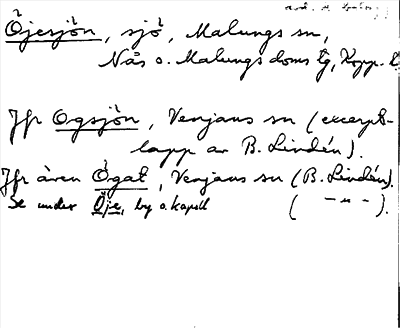 Öjesjön, sjö, Malungs sn,
Nås o. Malungs doms tg, Kopp. l.
Jfr Ogsjön, Venjans sn (excerpt-
lapp av B. Lindén).
Jfr även Ögat, Venjans sn (B. Lindén).
Se under Öje, by o. kapell ( - " - ).